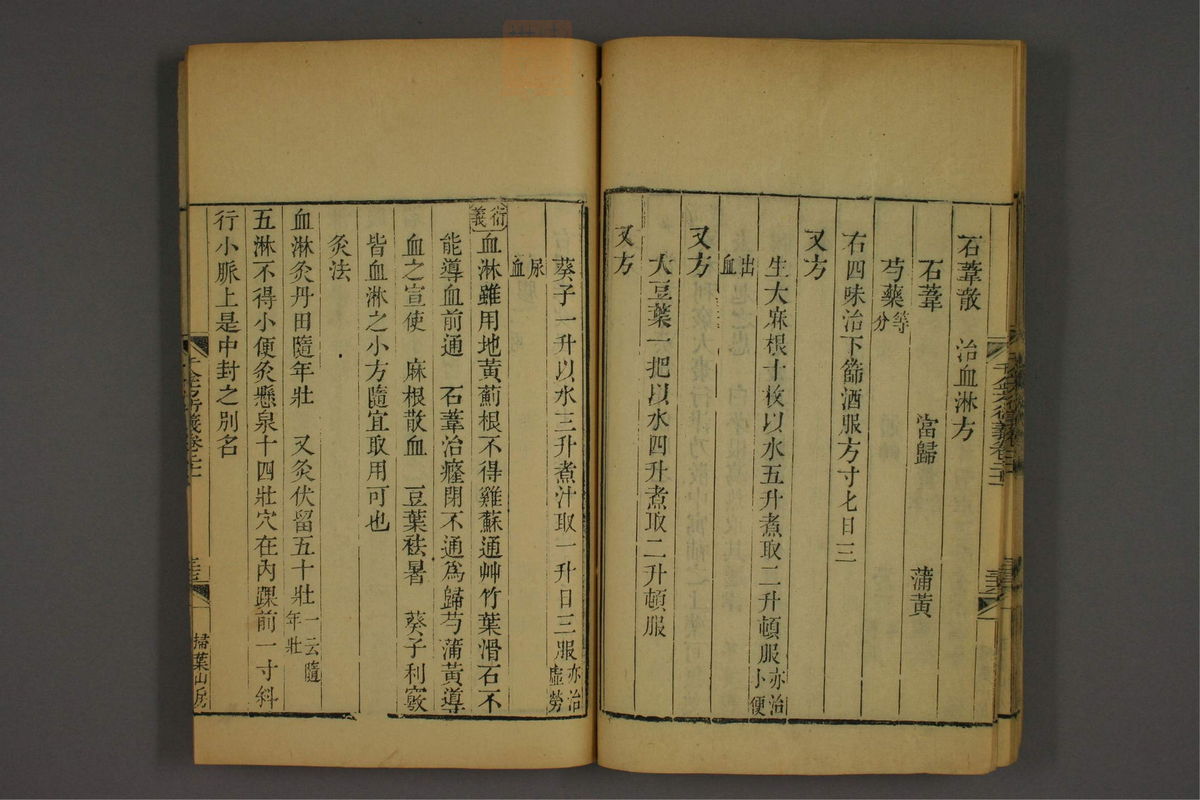 石葦散　治血淋方
石葦　當歸　蒲黃
芍藥等分
右四味治下篩酒服方寸匕日三
又方
生大麻根十枚以水五升煮取二升頓服亦治小便
出血
又方
大豆葉一把以水四升煮取二升頓服
又方
葵子一升以水三升煮汁取一升日三服亦治虛勞
尿血
衍義血淋雖用地黃薊根不得雞蘇通艸竹葉滑石不
能導血前通　石葦治癃閉不通爲歸芍蒲黃導
血之宣使　麻根散血　豆葉祛暑　葵子利竅
皆血淋之小方隨宜取用可也
灸法
血淋灸丹田隨年壯　又灸伏留五十壯一云隨年壯
五淋不得小便灸懸泉十四壯穴在內踝前一寸斜
行小脈上是中封之別名
千金方衍義卷二十一
掃葉山房